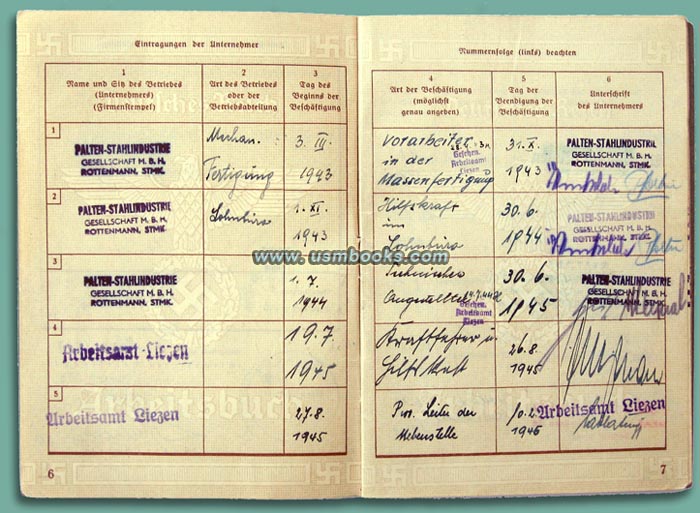 Eintragungen der Unternehmer
1
Name und Sitz des Betriebes
(Unternehmers)
(Firmenstempel)
2
Art des Betriebes
oder der
Betriebsabteilung
3
Tag des
Beginns der
Beschäftigung
1
PALTEN-STAHLINDUSTRIE
GESELLSCHAFT M. B. H.
ROTTENMANN, STMK.
Mechan.
Fertigung
3. III.
1943
2
PALTEN-STAHLINDUSTRIE
GESELLSCHAFT M. B. H.
ROTTENMANN, STMK.
Lohnbüro
1. XI.
1943
3
PALTEN-STAHLINDUSTRIE
GESELLSCHAFT M. B. H.
ROTTENMANN, STMK.
1. 7.
1944
4
Arbeitsamt Liezen
19.7.
1945
5
Arbeitsamt Liezen
27.8.
1945
6
Arbeitsbuch
www.usmbooks.com
Nummernfolge (links) beachten
4
Art der Beschäftigung
(möglichst
genau angeben)
5
Tag der
Beendigung der
Beschäftigung
6
Unterschrift
des Unternehmers
Vorarbeiter
in der
Massenfertigung
Gesehen.
Arbeitsamt
Liezen
31. X.
1943
PALTEN-STAHLINDUSTRIE
GESELLSCHAFT M. B. H.
ROTTENMANN, STMK.
Hilfskraft
im
Lohnbüro
30. 6.
1944
PALTEN-STAHLINDUSTRIE
GESELLSCHAFT M. B. H.
ROTTENMANN, STMK.
Technischer
Angestellter
Gesehen.
Arbeitsamt
Liezen
30. 6.
1945
PALTEN-STAHLINDUSTRIE
GESELLSCHAFT M. B. H.
ROTTENMANN, STMK.
Kraftfahrer u.
Hilfskraft
26.8.
1945
Leiter der
Nebenstelle
1946
Arbeitsamt Liezen
7